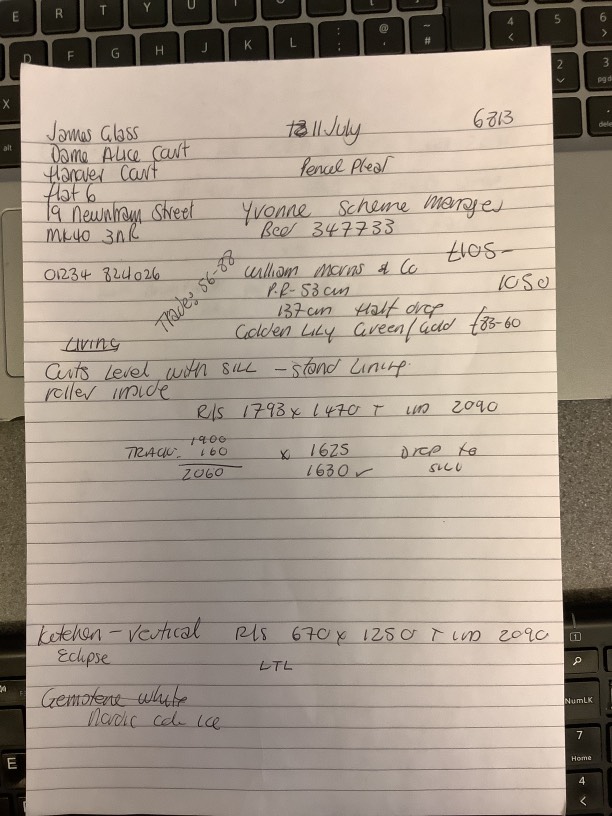 James Glass 11 July 6813
Dame Alice Court
Hanover Court Pencil Pleat
flat 6
19 Newnham Street Yvonne Scheme Manager
MK40 3NR 347733
01234 824026 Trade: 56-88 William Morris & Co £105-
P.R- 53cm 1050
137cm Half drop
Golden Lily Green/Gold £83-60
Living
Curts Level with sill - stand Lining.
roller inside
R/S 1793 x 1470 T 2090
1900
TRACK - 160 x 1625 Drop to
2060 1630 ✓ sill
Kitchen - Vertical R/S 670 x 1250 T 2090
Eclipse LTL
Gemotone white
Nordic ice
E R T Y U
D F G H J K L : ; @ ' ~ #
X
alt
4 5 6
2 3
NumLK
7
Home
4
E